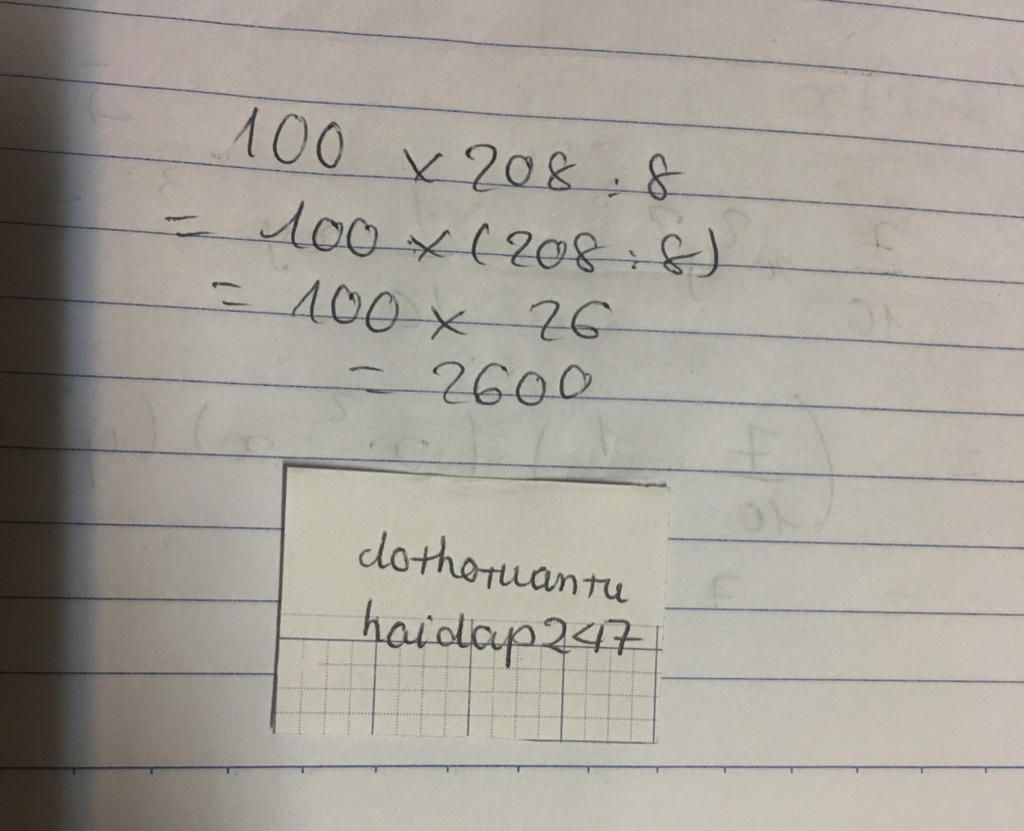 100 × 208 : 8
= 100 × (208 : 8)
= 100 × 26
= 2600
dothotuantu
haidap247